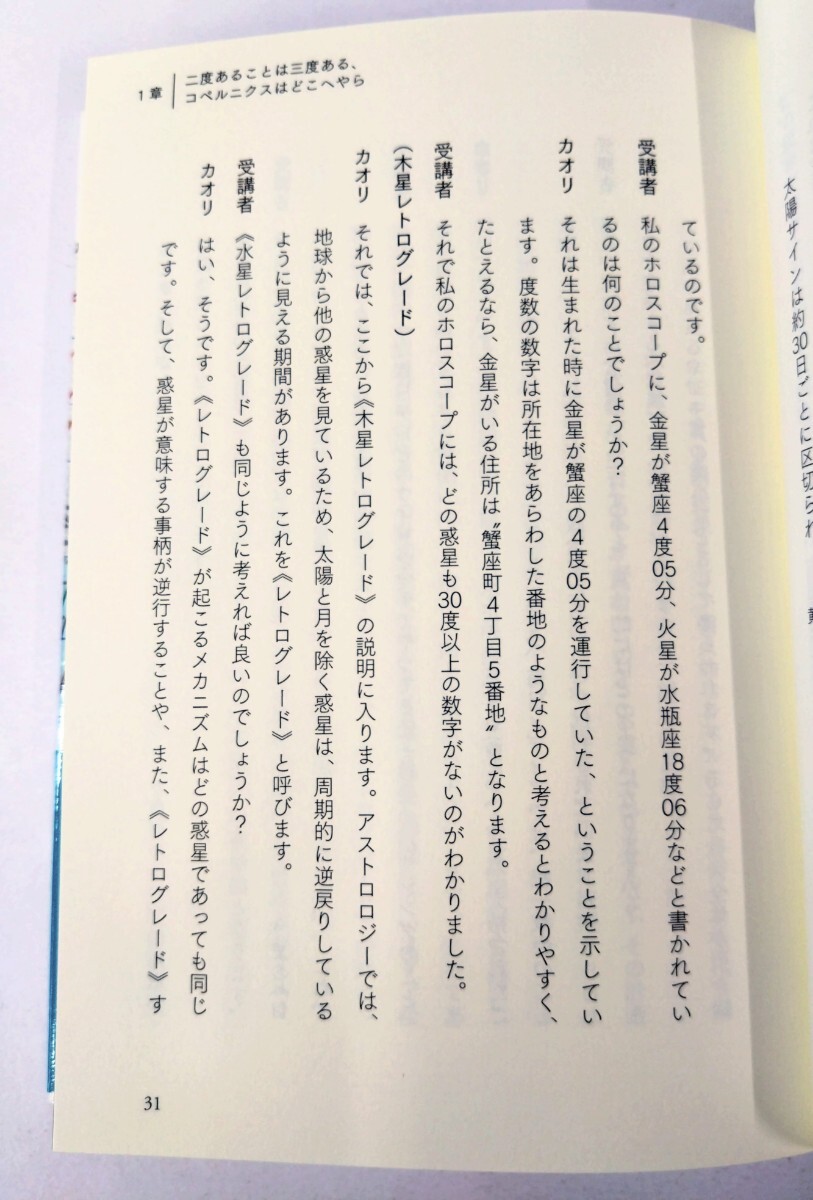 太陽サインは約30日ごとに区切られ
1章
二度あることは三度ある、
コペルニクスはどこへやら
ているのです。
受講者　私のホロスコープに、金星が蟹座4度05分、火星が水瓶座18度06分などと書かれてい
るのは何のことでしょうか?
カオリ　それは生まれた時に金星が蟹座の4度05分を運行していた、ということを示してい
ます。度数の数字は所在地をあらわした番地のようなものと考えるとわかりやすく、
たとえるなら、金星がいる住所は〝蟹座町4丁目5番地〟となります。
受講者　それで私のホロスコープには、どの惑星も30度以上の数字がないのがわかりました。
(木星レトログレード)
カオリ　それでは、ここから《木星レトログレード》の説明に入ります。アストロロジーでは、
地球から他の惑星を見ているため、太陽と月を除く惑星は、周期的に逆戻りしている
ように見える期間があります。これを《レトログレード》と呼びます。
受講者　《水星レトログレード》も同じように考えれば良いのでしょうか?
カオリ　はい、そうです。《レトログレード》が起こるメカニズムはどの惑星であっても同じ
です。そして、惑星が意味する事柄が逆行することや、また、《レトログレード》す
31